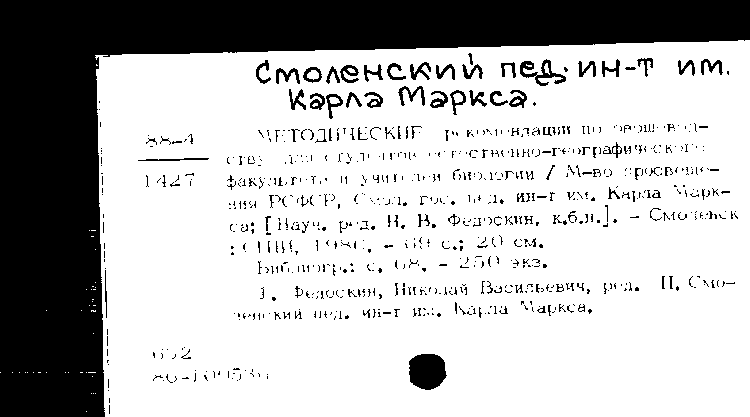 Смоленский пед. ин-т им.
Карла Маркса.
88-4
МЕТОДИЧЕСКИЕ рекомендации по овощевод-
ству для студентов естественно-географического
1427
факультета и учителей биологии / М-во просвеще-
ния РСФСР, Смол. гос. пед. ин-т им. Карла Марк-
са; [Науч. ред. Н. В. Федоскин, к.б.н.]. - Смоленск
: СГПИ, 1986. - 69 с.; 20 см.
Библиогр.: с. 68. - 250 экз.
1. Федоскин, Николай Васильевич, ред. II. Смо-
ленский пед. ин-т им. Карла Маркса.
652